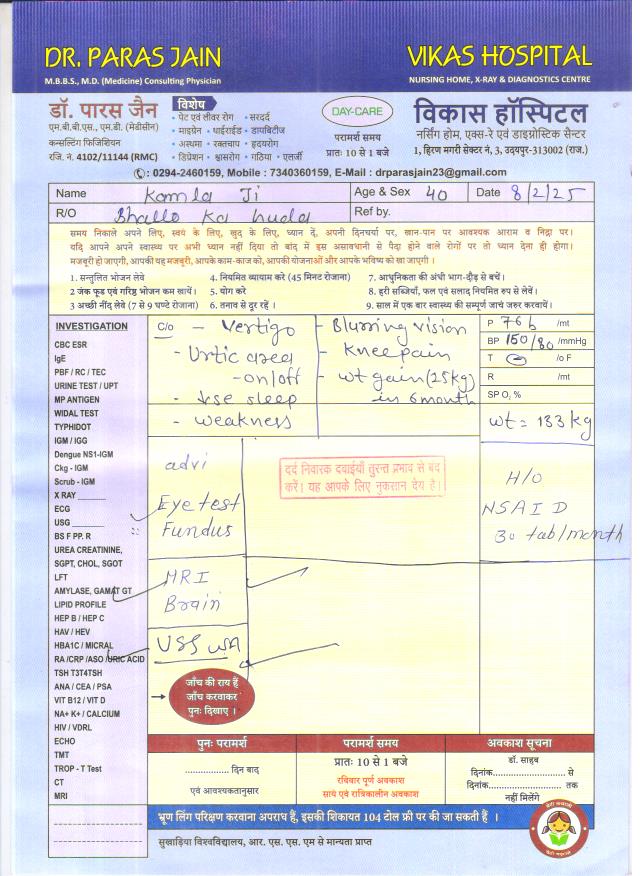 DR. PARAS JAIN
M.B.B.S., M.D. (Medicine) Consulting Physician
VIKAS HOSPITAL
NURSING HOME, X-RAY & DIAGNOSTICS CENTRE
डॉ. पारस जैन
एम.बी.बी.एस., एम.डी. (मेडीसीन)
कन्सल्टिंग फिजिशियन
रजि. नं. 4102/11144 (RMC)
विशेष
• पेट एवं लीवर रोग • सरदर्द
• माइग्रेन • थाईराईड • डायबिटीज
• अस्थमा • रक्तचाप • हृदयरोग
• डिप्रेशन • श्वासरोग • गठिया • एलर्जी
DAY-CARE
परामर्श समय
प्रातः 10 से 1 बजे
विकास हॉस्पिटल
नर्सिंग होम, एक्स-रे एवं डाइग्नोस्टिक सैन्टर
1, हिरण मगरी सेक्टर नं. 3, उदयपुर-313002 (राज.)
: 0294-2460159, Mobile : 7340360159, E-Mail : drparasjain23@gmail.com
Name Kamla Ji Age & Sex 40 Date 8/2/25
R/O Bhallo Ka huda Ref by.
समय निकाले अपने लिए, स्वयं के लिए, खुद के लिए, ध्यान दें, अपनी दिनचर्या पर, खान-पान पर आवश्यक आराम व निद्रा पर।
यदि आपने अपने स्वास्थ्य पर अभी ध्यान नहीं दिया तो बाद में इस असावधानी से पैदा होने वाले रोगों पर तो ध्यान देना ही होगा।
मजबूरी हो जाएगी, आपकी यह मजबूरी, आपके काम-काज को, आपकी योजनाओं और आपके भविष्य को खा जाएगी।
1. सन्तुलित भोजन लेवे 4. नियमित व्यायाम करे (45 मिनट रोजाना) 7. आधुनिकता की अंधी भाग-दौड़ से बचें।
2 जंक फूड एवं गरिष्ठ भोजन कम खायें। 5. योग करे 8. हरी सब्जियाँ, फल एवं सलाद नियमित रुप से लेवें।
3 अच्छी नींद लेवे (7 से 9 घण्टे रोजाना) 6. तनाव से दूर रहें । 9. साल में एक बार स्वास्थ्य की सम्पूर्ण जाचं जरुर करवायें।
INVESTIGATION
CBC ESR
IgE
PBF / RC / TEC
URINE TEST / UPT
MP ANTIGEN
WIDAL TEST
TYPHIDOT
IGM / IGG
Dengue NS1-IGM
Ckg - IGM
Scrub - IGM
X RAY ______
ECG
USG ______
BS F PP. R
UREA CREATININE,
SGPT, CHOL, SGOT
LFT
AMYLASE, GAMAT GT
LIPID PROFILE
HEP B / HEP C
HAV / HEV
HBA1C / MICRAL
RA /CRP /ASO /URIC ACID
TSH T3T4TSH
ANA / CEA / PSA
VIT B12 / VIT D
NA+ K+ / CALCIUM
HIV / VDRL
ECHO
TMT
TROP - T Test
CT
MRI
C/o - Vertigo
- Urticarea
- on/off
- ↓se sleep
- weakness
- Blurring vision
- Knee pain
- wt gain (25kg)
in 6 month
P 76 b /mt
BP 150/80 /mmHg
T /o F
R /mt
SP O, %
wt = 133 kg
advi
Eye test
Fundus
MRI
Brain
दर्द निवारक दवाईयाँ तुरन्त प्रभाव से बंद
करें। यह आपके लिए नुकसान देय है।
H/o
NSAID
30 tab/month
जाँच की राय हैं
जाँच करवाकर
पुनः दिखाए ।
पुनः परामर्श
................ दिन बाद
एवं आवश्यकतानुसार
परामर्श समय
प्रातः 10 से 1 बजे
रविवार पूर्ण अवकाश
सायं एवं रात्रिकालीन अवकाश
अवकाश सूचना
डॉ. साहब
दिनांक.......................... से
दिनांक.......................... तक
नहीं मिलेंगे
भ्रूण लिंग परिक्षण करवाना अपराध हैं, इसकी शिकायत 104 टोल फ्री पर की जा सकती हैं ।
सुखाड़िया विश्वविद्यालय, आर. एस. एस. एम से मान्यता प्राप्त